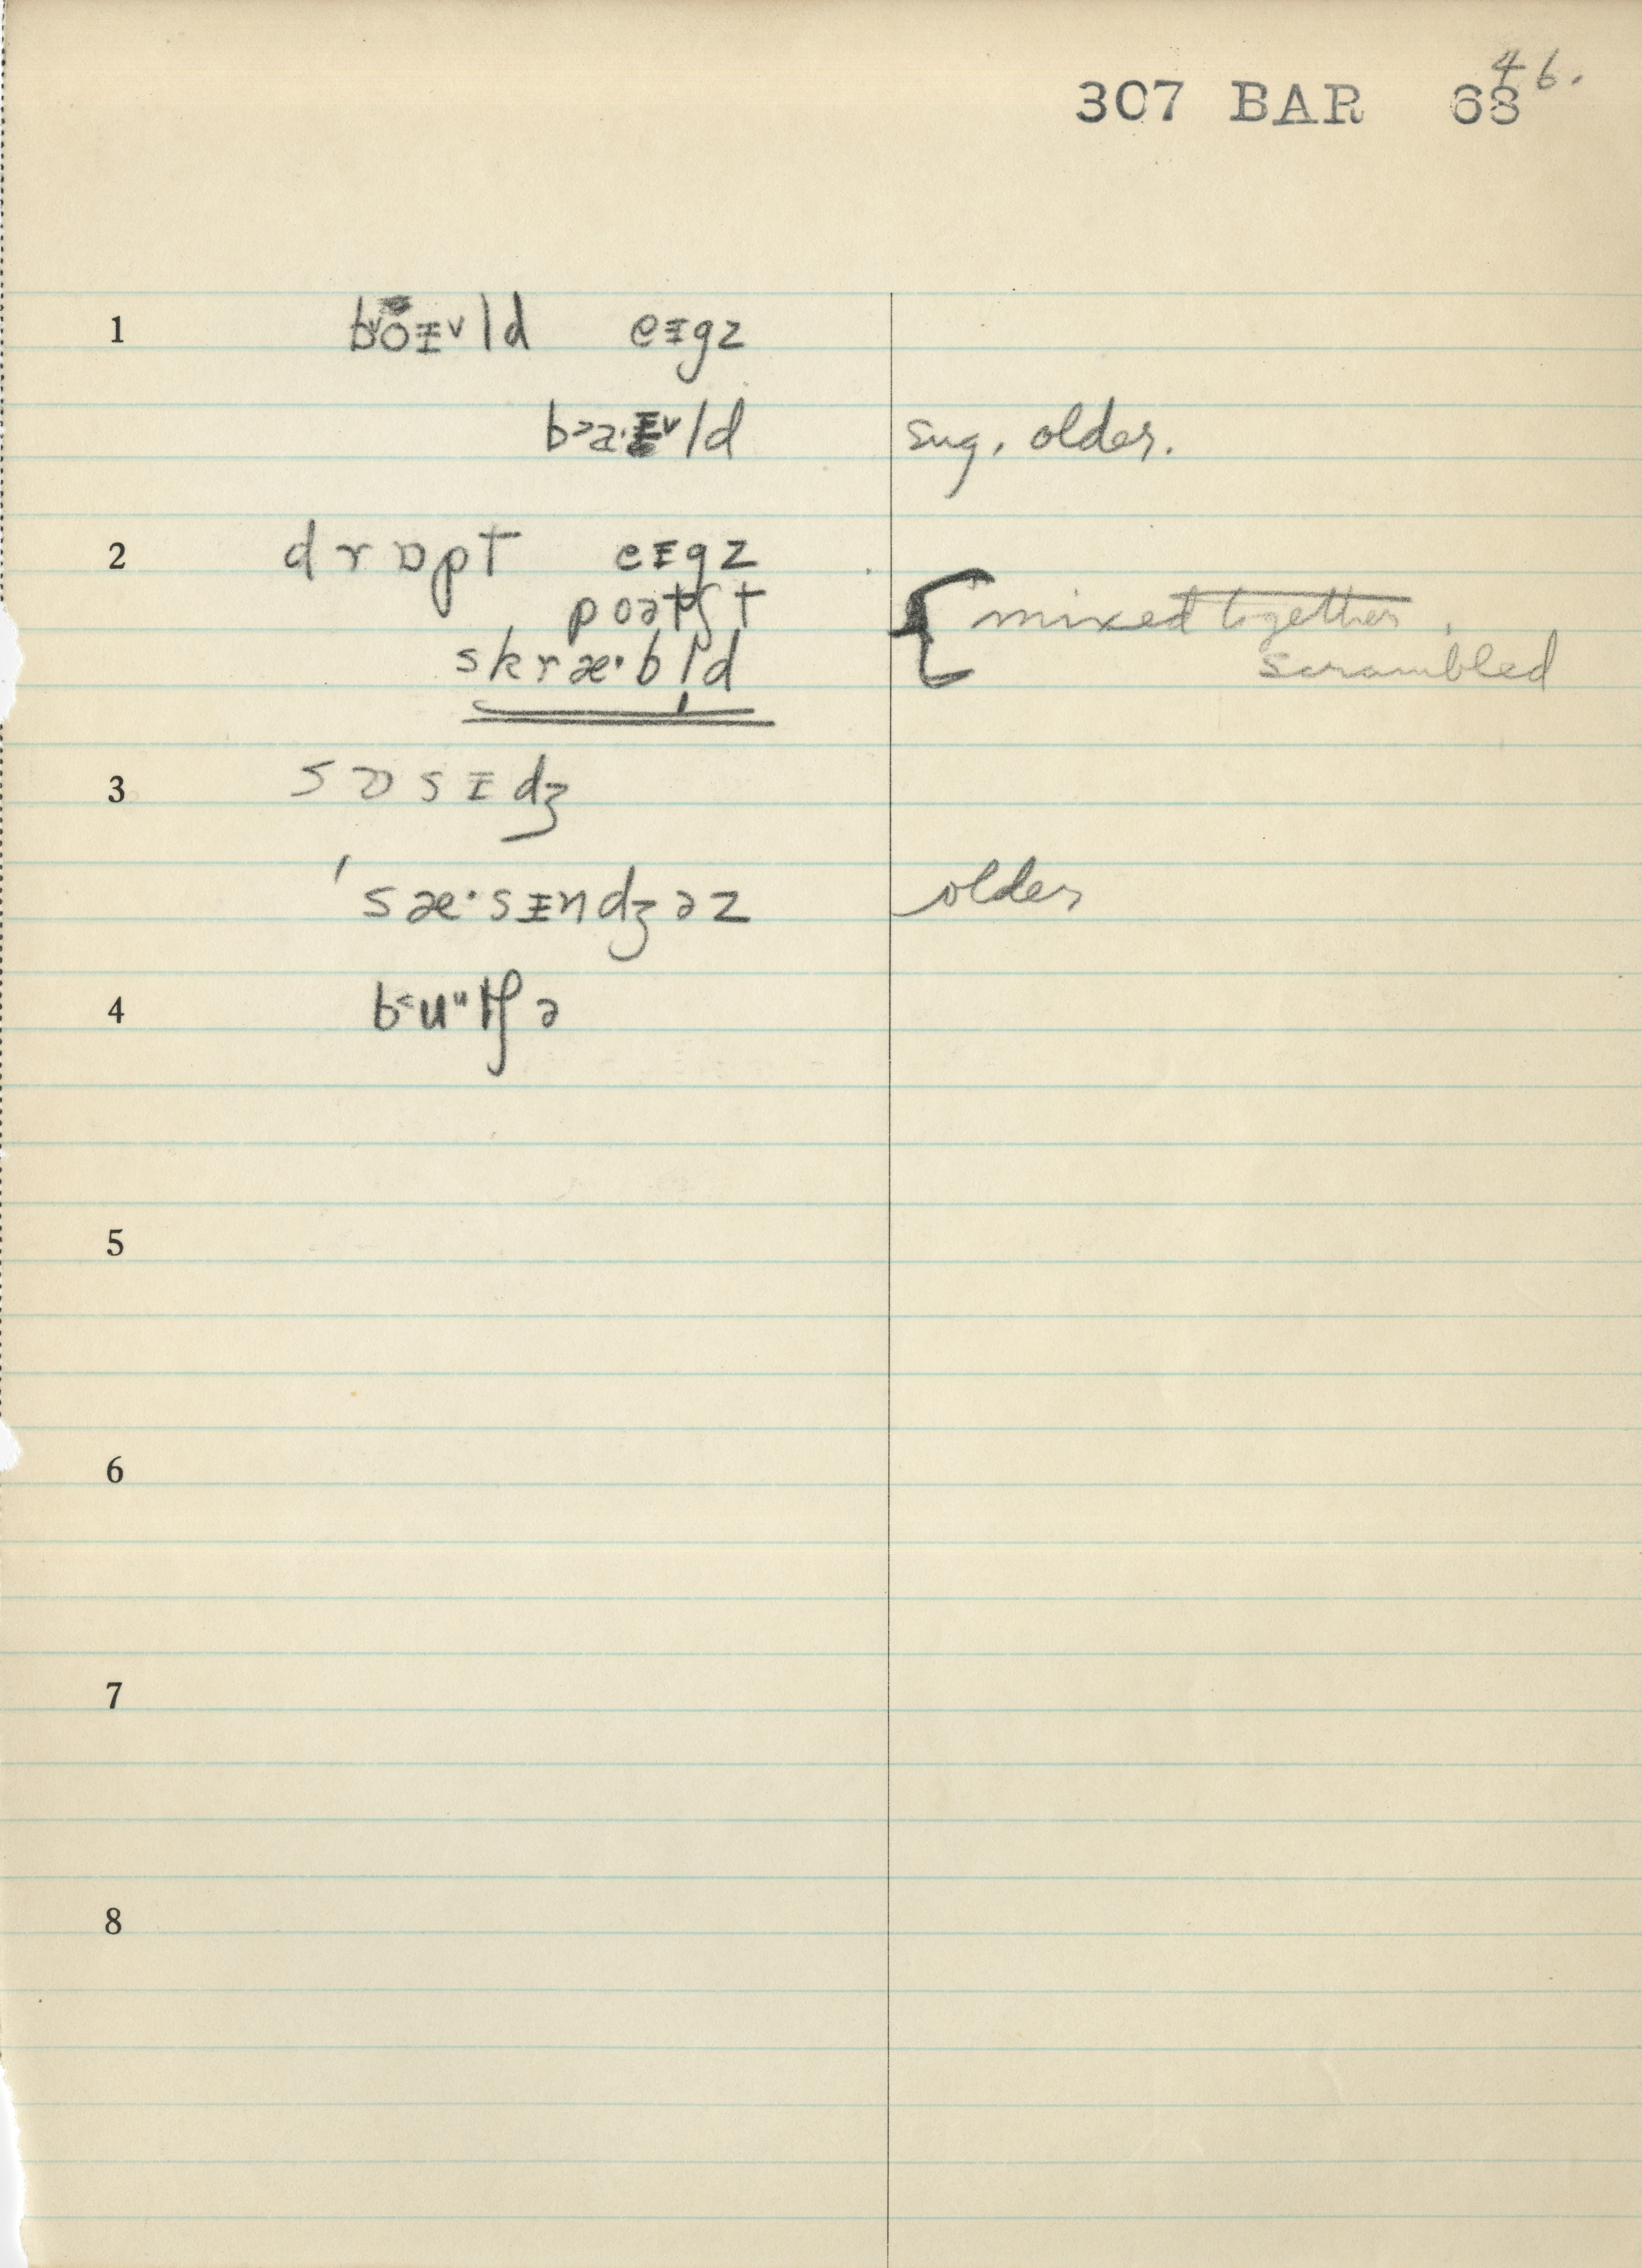 46.
307 BAR 68
1 bɔ̈ɪld eɪgz
ba·ɪld sug. older.
2 drɒpt eɪgz
poətʃt { mixed together.
skræ·bl̩d scrambled
3 sɒsɪdʒ
'sæ·sɪndʒəz older
4 butʃə
5
6
7
8